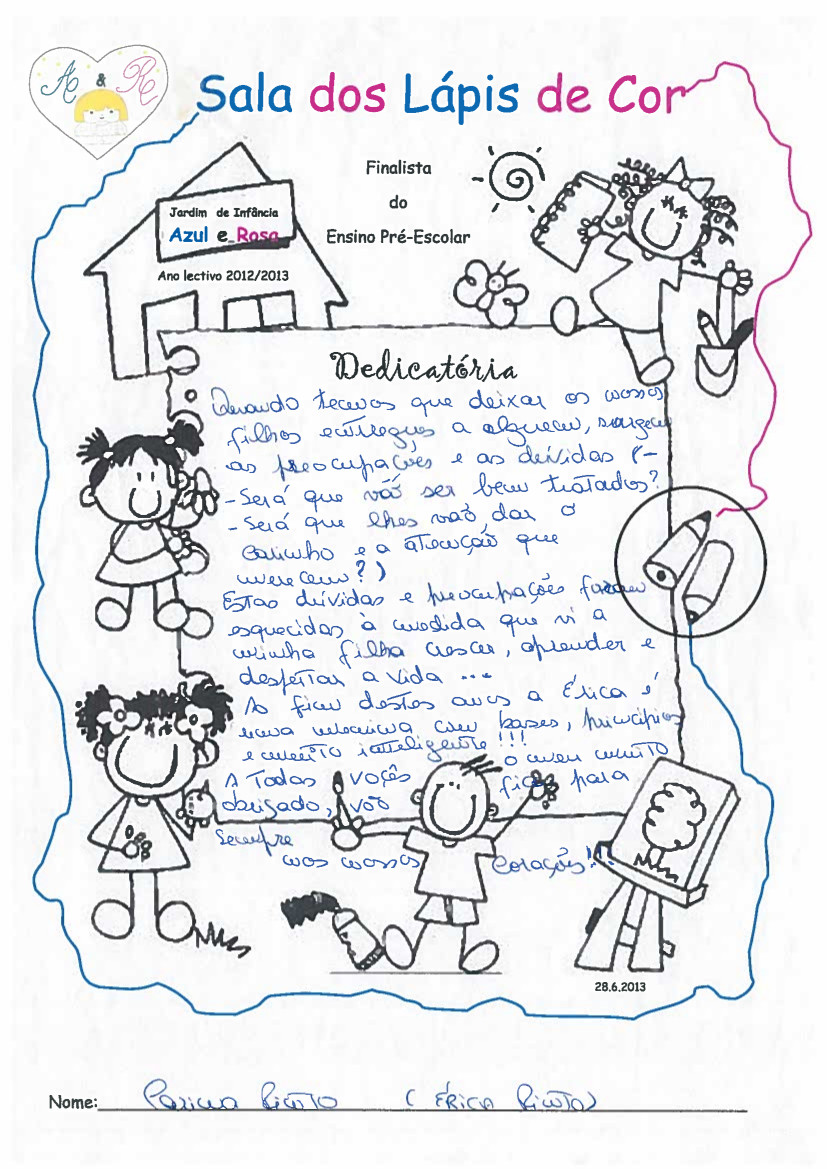 A & R
Sala dos Lápis de Cor
Finalista
do
Ensino Pré-Escolar
Jardim de Infância
Azul e Rosa
Ano lectivo 2012/2013
Dedicatória
Quando temos que deixar os nossos
filhos entregues a alguem, surgem
as preocupações e as dúvidas (-
- Será que vão ser bem tratados?
- Será que lhes vão dar o
carinho e a atenção que
merecem?)
Estas dúvidas e preocupações foram
esquecidas à medida que vi a
minha filha crescer, aprender e
despertar a vida ...
Ao fim destes anos a Érica é
uma menina com bases, principios
e muito inteligente!!!
A Todas vocês o meu muito
obrigado, vão ficar para
sempre
nos nossos corações!!!
28.6.2013
Nome: Pinto (Érica Pinto)